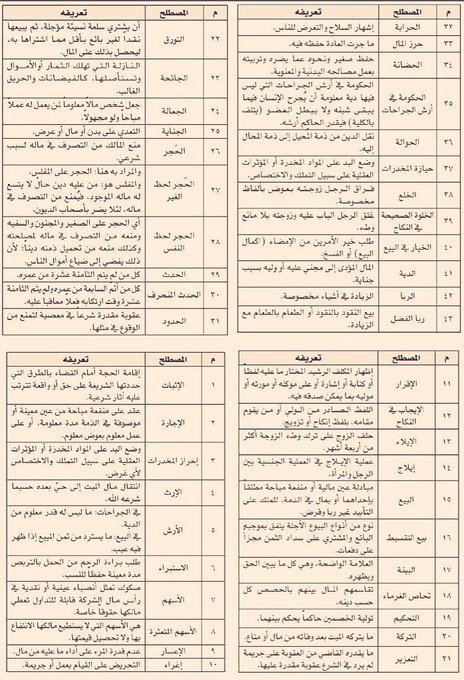 م المصطلح تعريفه
٣٢ الحرابة إشهار السلاح والتعرض للناس.
٣٣ حرز المال ما جرت العادة حفظه فيه.
٣٤ الحضانة حفظ صغير ونحوه عما يضره وتربيته
بعمل مصالحه البدنية والمعنوية.
٣٥ الحكومة في
أرش الجراحات
الحكومة في أرش الجراحات التي ليس
فيها دية معلومة أن يُجرح الإنسان فيما
يبقى شينه ولا يبطل العضو (يتلف
بالكلية) فيقدر الحاكم أرشه.
٣٦ الحوالة نقل الدين من ذمة المحيل إلى ذمة المحال
إليه.
٣٧ حيازة المخدرات وضع اليد على المواد المخدرة أو المؤثرات
العقلية على سبيل التملك والاختصاص.
٣٨ الخلع فراق الرجل زوجته بعوض بألفاظ
مخصوصة.
٣٩ الخلوة الصحيحة
في النكاح
غلق الرجل الباب عليه وزوجته بلا مانع
وطء.
٤٠ الخيار في البيع طلب خير الأمرين من الإمضاء (إكمال
البيع) أو الفسخ.
٤١ الدية المال المؤدى إلى مجني عليه أو وليه بسبب
جناية.
٤٢ الربا الزيادة في أشياء مخصوصة.
٤٣ ربا الفضل بيع النقود بالنقود أو الطعام بالطعام مع
الزيادة.
م المصطلح تعريفه
٢٢ التورق أن يشتري سلعة نسيئة مؤجلة، ثم يبيعها
نقدا لغير بائع بأقل مما اشتراها به،
ليحصل بذلك على المال.
٢٣ الجائحة النازلة التي تهلك الثمار أو الأموال
وتستأصلها، كالفيضانات والحريق
الغالب.
٢٤ الجعالة جعل شخص مالا معلوما لمن يعمل له عملا
مباحا ولو مجهولا.
٢٥ الجناية التعدي على بدن أو مال أو عرض.
٢٦ الحَجر منع المالك من التصرف في ماله لسبب
شرعي.
٢٧ الحَجر لحظ
الغير
والمراد به هنا: الحجر على المفلس.
والمفلس هو: من عليه دين حال لا يتسع
له ماله الموجود، فيُمنع من التصرف في
ماله، لئلا يضر بأصحاب الديون.
٢٨ الحجر لحظ
النفس
أي الحجر على الصغير والمجنون والسفيه
ومنعه من التصرف في ماله لمصلحته
وكذلك منعه من تحميل ذمته ديناً؛ لأن
ذلك يفضي إلى ضياع أموال الناس.
٢٩ الحدث كل من لم يتم الثامنة عشرة من عمره.
٣٠ الحدث المنحرف كل من أتم السابعة من عمره ولم يتم الثامنة
عشرة وقت ارتكابه فعلا معاقبا عليه.
٣١ الحدود عقوبة مقدرة شرعاً في معصية لتمنع من
الوقوع في مثلها.
م المصطلح تعريفه
١١ الإقرار إظهار المكلف الرشيد المختار ما عليه لفظاً
أو كتابة أو إشارة أو على موكله أو مورثه أو
موليه بما يمكن صدقه فيه.
١٢ الإيجاب في
النكاح
اللفظ الصادر من الولي أو من يقوم
مقامه، بلفظ إنكاح أو تزويج.
١٣ الإيلاء حلف الزوج على ترك وطء الزوجة أكثر
من أربعة أشهر.
١٤ إيلاج عملية الإيلاج في العملية الجنسية بين
الرجل والمرأة.
١٥ البيع مبادلة عين مالية أو منفعة مباحة مطلقاً
بإحداهما أو بمال في الذمة، للملك على
التأبيد غير ربا وقرض.
١٦ بيع التقسيط نوع من أنواع البيوع الآجلة يتفق بموجبه
البائع والمشتري على سداد الثمن مجزأ
على دفعات.
١٧ البينة العلامة الواضحة، وهي كل ما يبين الحق
ويظهره.
١٨ تحاص الغرماء تقاسمهم المال بينهم بالحصص كل
حسب دينه.
١٩ التحكيم تولية الخصمين حاكماً يحكم بينهما.
٢٠ التركة ما يتركه الميت بعد وفاته من مال أو متاع.
٢١ التعزير ما يقدره القاضي من العقوبة على جريمة
لم يرد في الشرع عقوبة مقدرة عليها.
م المصطلح تعريفه
١ الإثبات إقامة الحجة أمام القضاء بالطرق التي
حددتها الشريعة على حق أو واقعة تترتب
عليه آثار شرعية.
٢ الإجارة عقد على منفعة مباحة من عين معينة أو
موصوفة في الذمة مدة معلومة، أو على
عمل معلوم بعوض معلوم.
٣ إحراز المخدرات وضع اليد على المواد المخدرة أو المؤثرات
العقلية على سبيل التملك والاختصاص
لأي غرض.
٤ الإرث انتقال مال الميت إلى حيٍّ بعده حسبما
شرعه الله.
٥ الأرش في الجراحات: ما ليس له قدر معلوم من
الدية.
في البيع: ما يسترد من ثمن المبيع إذا ظهر
فيه عيب.
٦ الاستبراء طلب براءة الرحم من الحمل بالتربص
مدة معينة حفظا للنسب.
٧ الأسهم صكوك تمثل أنصباء عينية أو نقدية في
رأس مال الشركة قابلة للتداول تعطي
مالكها حقوقا خاصة.
٨ الأسهم المتعثرة هي الأسهم التي لا يستطيع مالكها الانتفاع
بها ولا تحصيل قيمتها.
٩ الإعسار عدم قدرة المرء على أداء ما عليه من مال.
١٠ إغراء التحريض على القيام بعمل أو جريمة.